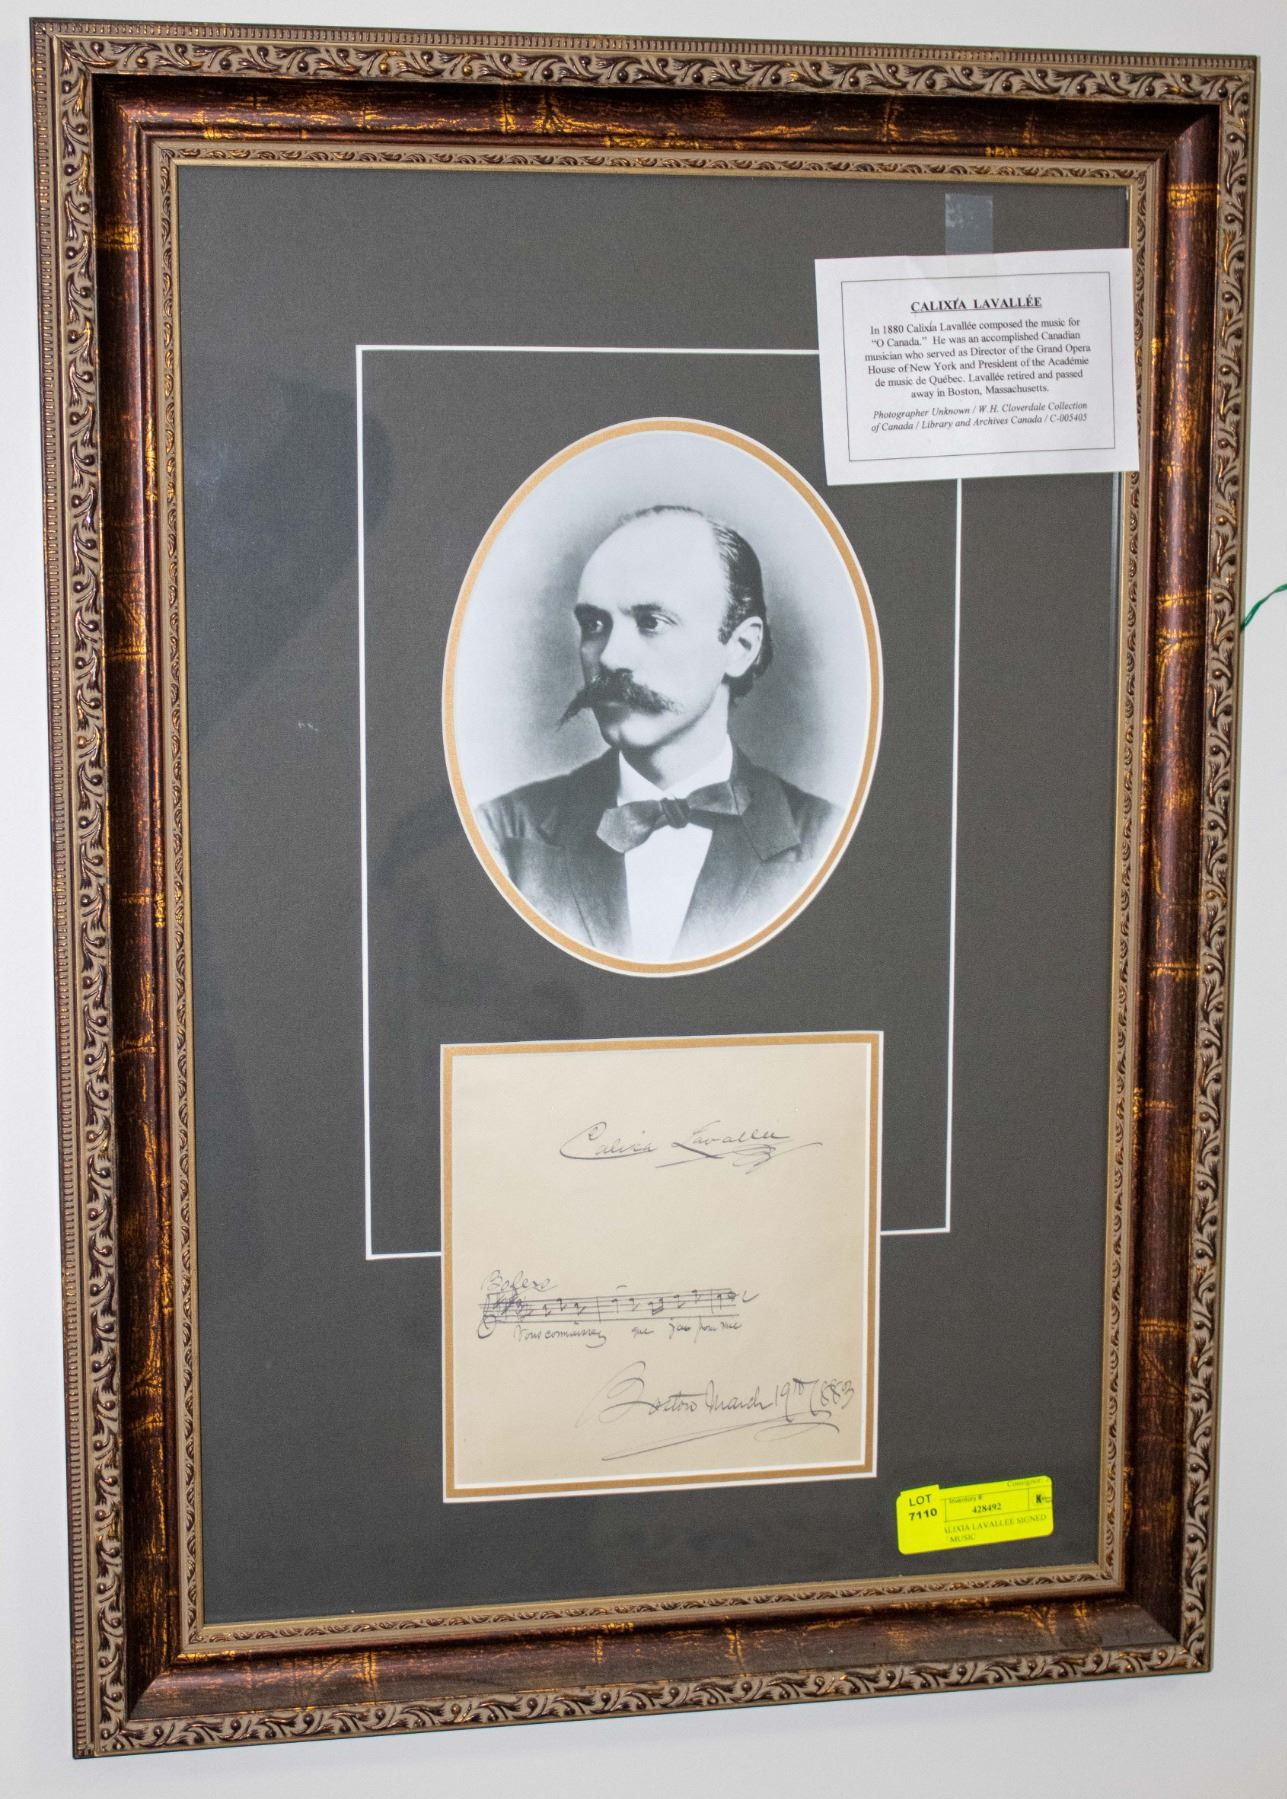 CALIXÍA LAVALLÉE
In 1880 Calixía Lavallée composed the music for
“O Canada.” He was an accomplished Canadian
musician who served as Director of the Grand Opera
House of New York and President of the Académie
de music de Québec. Lavallée retired and passed
away in Boston, Massachusetts.
Photographer Unknown / W.H. Cloverdale Collection
of Canada / Library and Archives Canada / C-005405
Calixa Lavallée
Bolero
Vous connaissez que
Boston March 19th 1883
Consignor:
LOT Inventory #:
7110 428492 K
ALIXIA LAVALLEE SIGNED
MUSIC